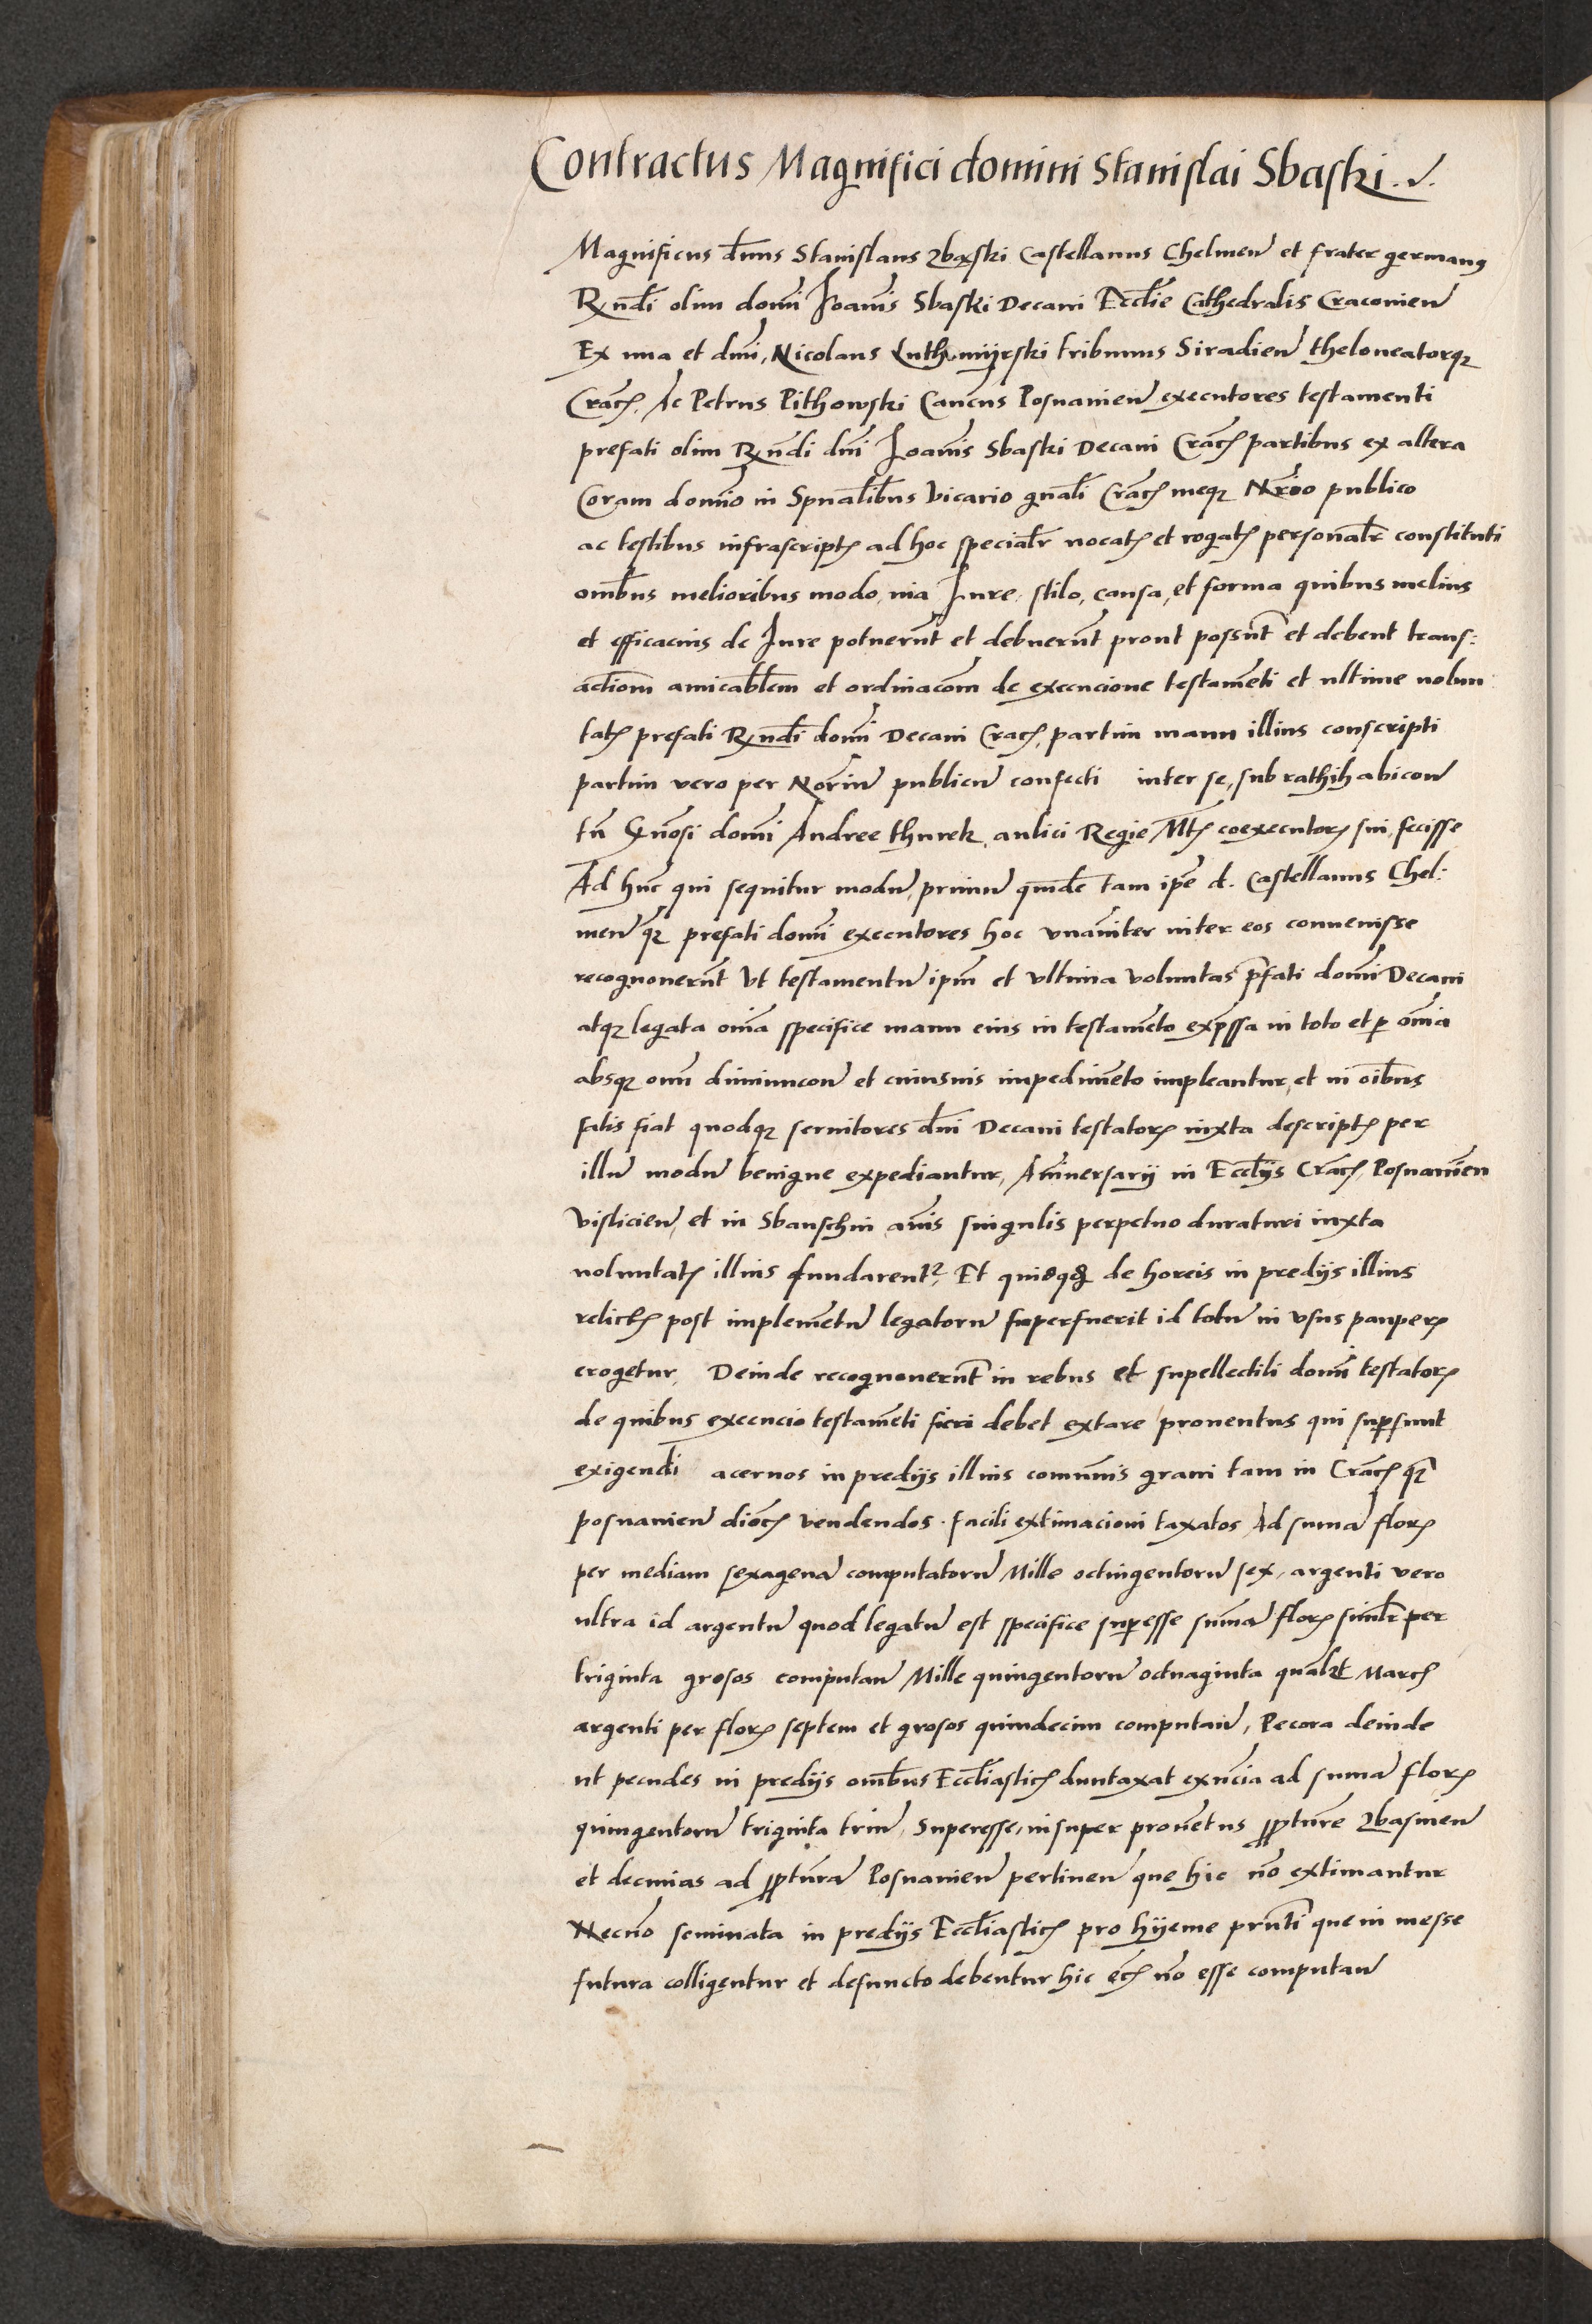 Contractus Magnifici domini Stanislai Sbaski
Magnificus dn̄us Stanislaus Zbąski Castellanus Chelmen̄ et frater germanꝰ
Rn̄di olim domī Ioan̄is Sbaski Decani Eccl̄ie Cathedralis Cracovien̄
Ex una et dn̄i, Nicolaus Luthomijrski tribunus Siradien̄ theloneatorqꝫ
Crac̄. Ac Petrus Pithowski Can̄cus Posnanien̄ executores testamenti
prefati olim Rn̄di dn̄i Ioan̄is Sbaski Decani Crac̄ partibus ex altera
Coram domīo in Spūalibus vicario gn̄ali Crac̄ meqꝫ Nr̄io publico
ac testibus infrascriptꝭ ad hoc specialr̄ uocatꝭ et rogatꝭ personalr̄ constituti
omībus melioribus modo, uia Iure, stilo, causa, et forma quibus melius
et efficacius de Iure potuerūt et debuerūt prout possūt et debent trans:
actiom̄ amicabl̄em et ordinacōm de execucione testamēti et ultime uolun
tatꝭ prefati Rn̄di domī Decani Crac̄, partim manu illius conscripti
partim vero per Norīū publicū confecti inter se, sub rathihabicōn̄
tn̄ Gn̄osi domī Andree thurek, aulici Regie Mtꝭ coexecutorꝭ sui, fecisse
Ad hūc qui sequitur modū, primū quidē tam ip̄e d. Castellanus Chel:
men̄ qꝫ prefati domī executores hoc vnāniter inter eos conuenisse
recognouerūt Vt testamentū ipm̄ et vltima voluntas p̄fati domī Decani
atqꝫ legata om̄ia specifice manu eius in testamēto exp̄ssa in toto et p om̄ia
absqꝫ omī diminucōn̄ et cuiusuis impedimēto impleantur, et in oībus
satis fiat quodqꝫ seruitores dn̄i Decani testatorꝭ iuxta descriptꝭ per
illū modū benigne expediantur, Anīuersarij in Eccl̄ijs Crac̄, Posnanien̄
Visliciē, et in Sbanschin an̄is singulis perpetuo duraturi iuxta
uoluntatꝭ illius fundarent᷑, Et quicqd de horeis in predijs illius
relictꝭ post implemētū legatorū superfuerit id totū in vsus pauperꝭ
erogetur, Deinde recognouerūt in rebus et supellectili domī testatorꝭ
de quibus execucio testamēti fieri debet extare prouentus qui supsunt
exigendi acernos in predijs illius comūnis grani tam in Crac̄ qꝫ
posnanien̄ dioc̄ vendendos. facili extimacioni taxatos Ad sumā florꝭ
per mediam sexagenā computatorū Mille octingentorū sex, argenti vero
ultra id argentū quod legatū est specifice supesse sūmā florꝭ similr̄ per
triginta grosos computan̄ Mille quingentorū octuaginta qualꝫt Marcꝭ
argenti per florꝭ septem et grosos quindecim computan̄, Pecora deinde
ut pecudes in predijs omībus Eccl̄iasticꝭ duntaxat exn̄cia ad sumā florꝭ
quingentorū triginta triū. Superesse, insuper prouētus p̄ptūre Zbasinen̄
et decimas ad p̄ptūrā Posnanien̄ pertinen̄ que hic nō extimantur
Necnō seminata in predijs Eccl̄iasticꝭ pro hijeme prn̄ti que in messe
futura colligentur et defuncto debentur hic ec̄ nō esse computan̄